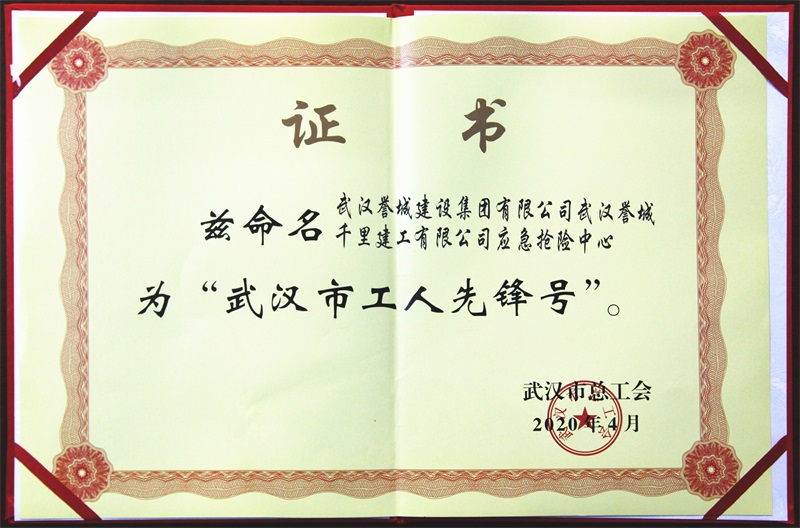 证 书
兹命名武汉誉城建设集团有限公司武汉誉城
千里建工有限公司应急抢险中心
为“武汉市工人先锋号”。
武汉市总工会
2020年4月